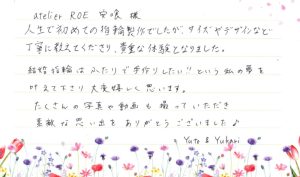 atelier ROE 様
人生で初めての指輪製作でしたが、サイズやデザインなど
丁寧に教えてくださり、貴重な体験となりました。
結婚指輪はふたりで手作りしたい!!という私の夢を
叶えて下さり大変嬉しく思います。
たくさんの写真や動画も撮っていただき
素敵な思い出をありがとうございました♪
Yuto & Yukari